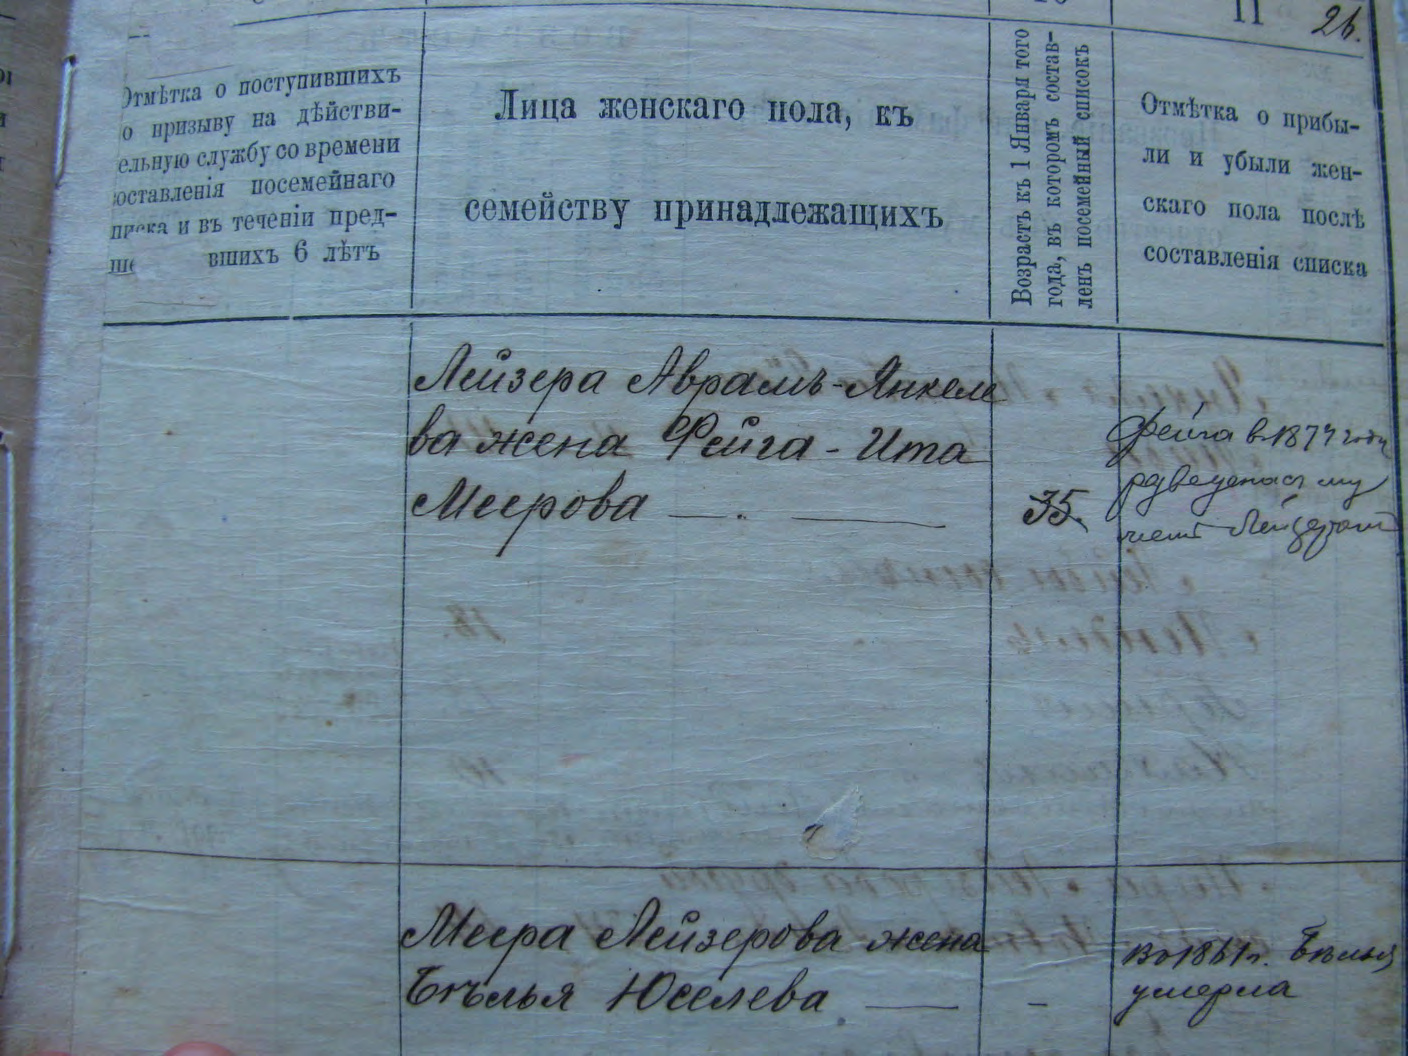 11
26.
Отмѣтка о поступившихъ
по призыву на дѣйстви-
тельную службу со времени
составленія посемейнаго
списка и въ теченіи пред-
ше вшихъ 6 лѣтъ
Лица женскаго пола, къ
семейству принадлежащихъ
Возрастъ къ 1 Января того
года, въ которомъ состав-
ленъ посемейный списокъ
Отмѣтка о прибы-
ли и убыли жен-
скаго пола послѣ
составленія списка
Лейзера Аврамъ-Янкеле
ва жена Фейга-Ита
Меерова
35.
Фейга в 1877 году
разведена съ му
жемъ Лейзеромъ
Меера Лейзерова жена
Бѣлья Юселева
-
Бѣлья
умерла